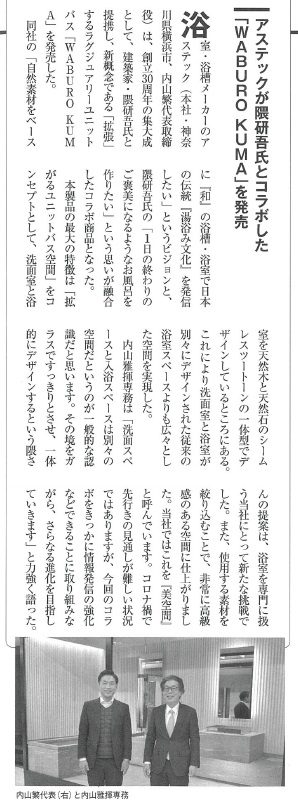 アステックが隈研吾氏とコラボした
「WABURO KUMA」を発売
浴室・浴槽メーカーのア
ステック(本社・神奈
川県横浜市、内山繁代表取締
役)は、創立30周年の集大成
として、建築家・隈研吾氏と
提携し、新概念である「拡張」
するラグジュアリーユニット
バス「WABURO KUM
A」を発売した。
同社の「自然素材をベース
に『和』の浴槽・浴室で日本
の伝統『湯浴み文化』を発信
したい」というビジョンと、
隈研吾氏の「1日の終わりの
ご褒美になるようなお風呂を
作りたい」という思いが融合
したコラボ商品となった。
本製品の最大の特徴は「拡
がるユニットバス空間」をコ
ンセプトとして、洗面室と浴
室を天然木と天然石のシーム
レスツートーンの一体型でデ
ザインしているところにある。
これにより洗面室と浴室が
別々にデザインされた従来の
浴室スペースよりも広々とし
た空間を実現した。
内山雅揮専務は「洗面スペ
ースと入浴スペースは別々の
空間だというのが一般的な認
識だと思います。その境をガ
ラスですっきりとさせ、一体
的にデザインするという隈さ
んの提案は、浴室を専門に扱
う当社にとって新たな挑戦で
した。また、使用する素材を
絞り込むことで、非常に高級
感のある空間に仕上がりまし
た。当社ではこれを『美空間』
と呼んでいます。コロナ禍で
先行きの見通しが難しい状況
ではありますが、今回のコラ
ボをきっかに情報発信の強化
などできることに取り組みな
がら、さらなる進化を目指し
ていきます」と力強く語った。
内山繁代表(右)と内山雅揮専務